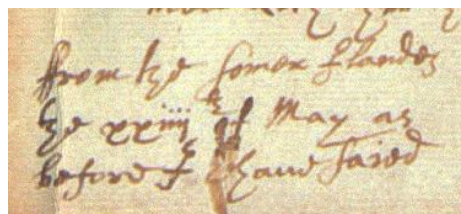 ffrom the Somer Ilandes
the xxiiiith of May as
before I haue saied